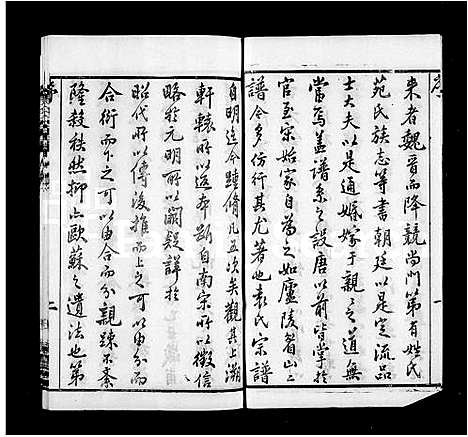 来者魏晉而降競尚門第有姓氏
苑氏族志等書朝廷以是定流品
士大夫以是通婚嫁于親親之道無
當焉蓋譜系之設唐以前皆掌於
官至宋始家自為之如廬陵眉山之
譜今多仿行其尤著也袁氏宗譜
自明迄今踵脩凡五次矣觀其上溯
軒轅所以返本斷自南宋所以徵信
略於元明所以闕疑詳於
昭代所以傳後推而上之可以由分而
合衍而下之可以由合而分親疎不紊
隆殺秩然抑亦歐蘇之遺法也第
序
一
二